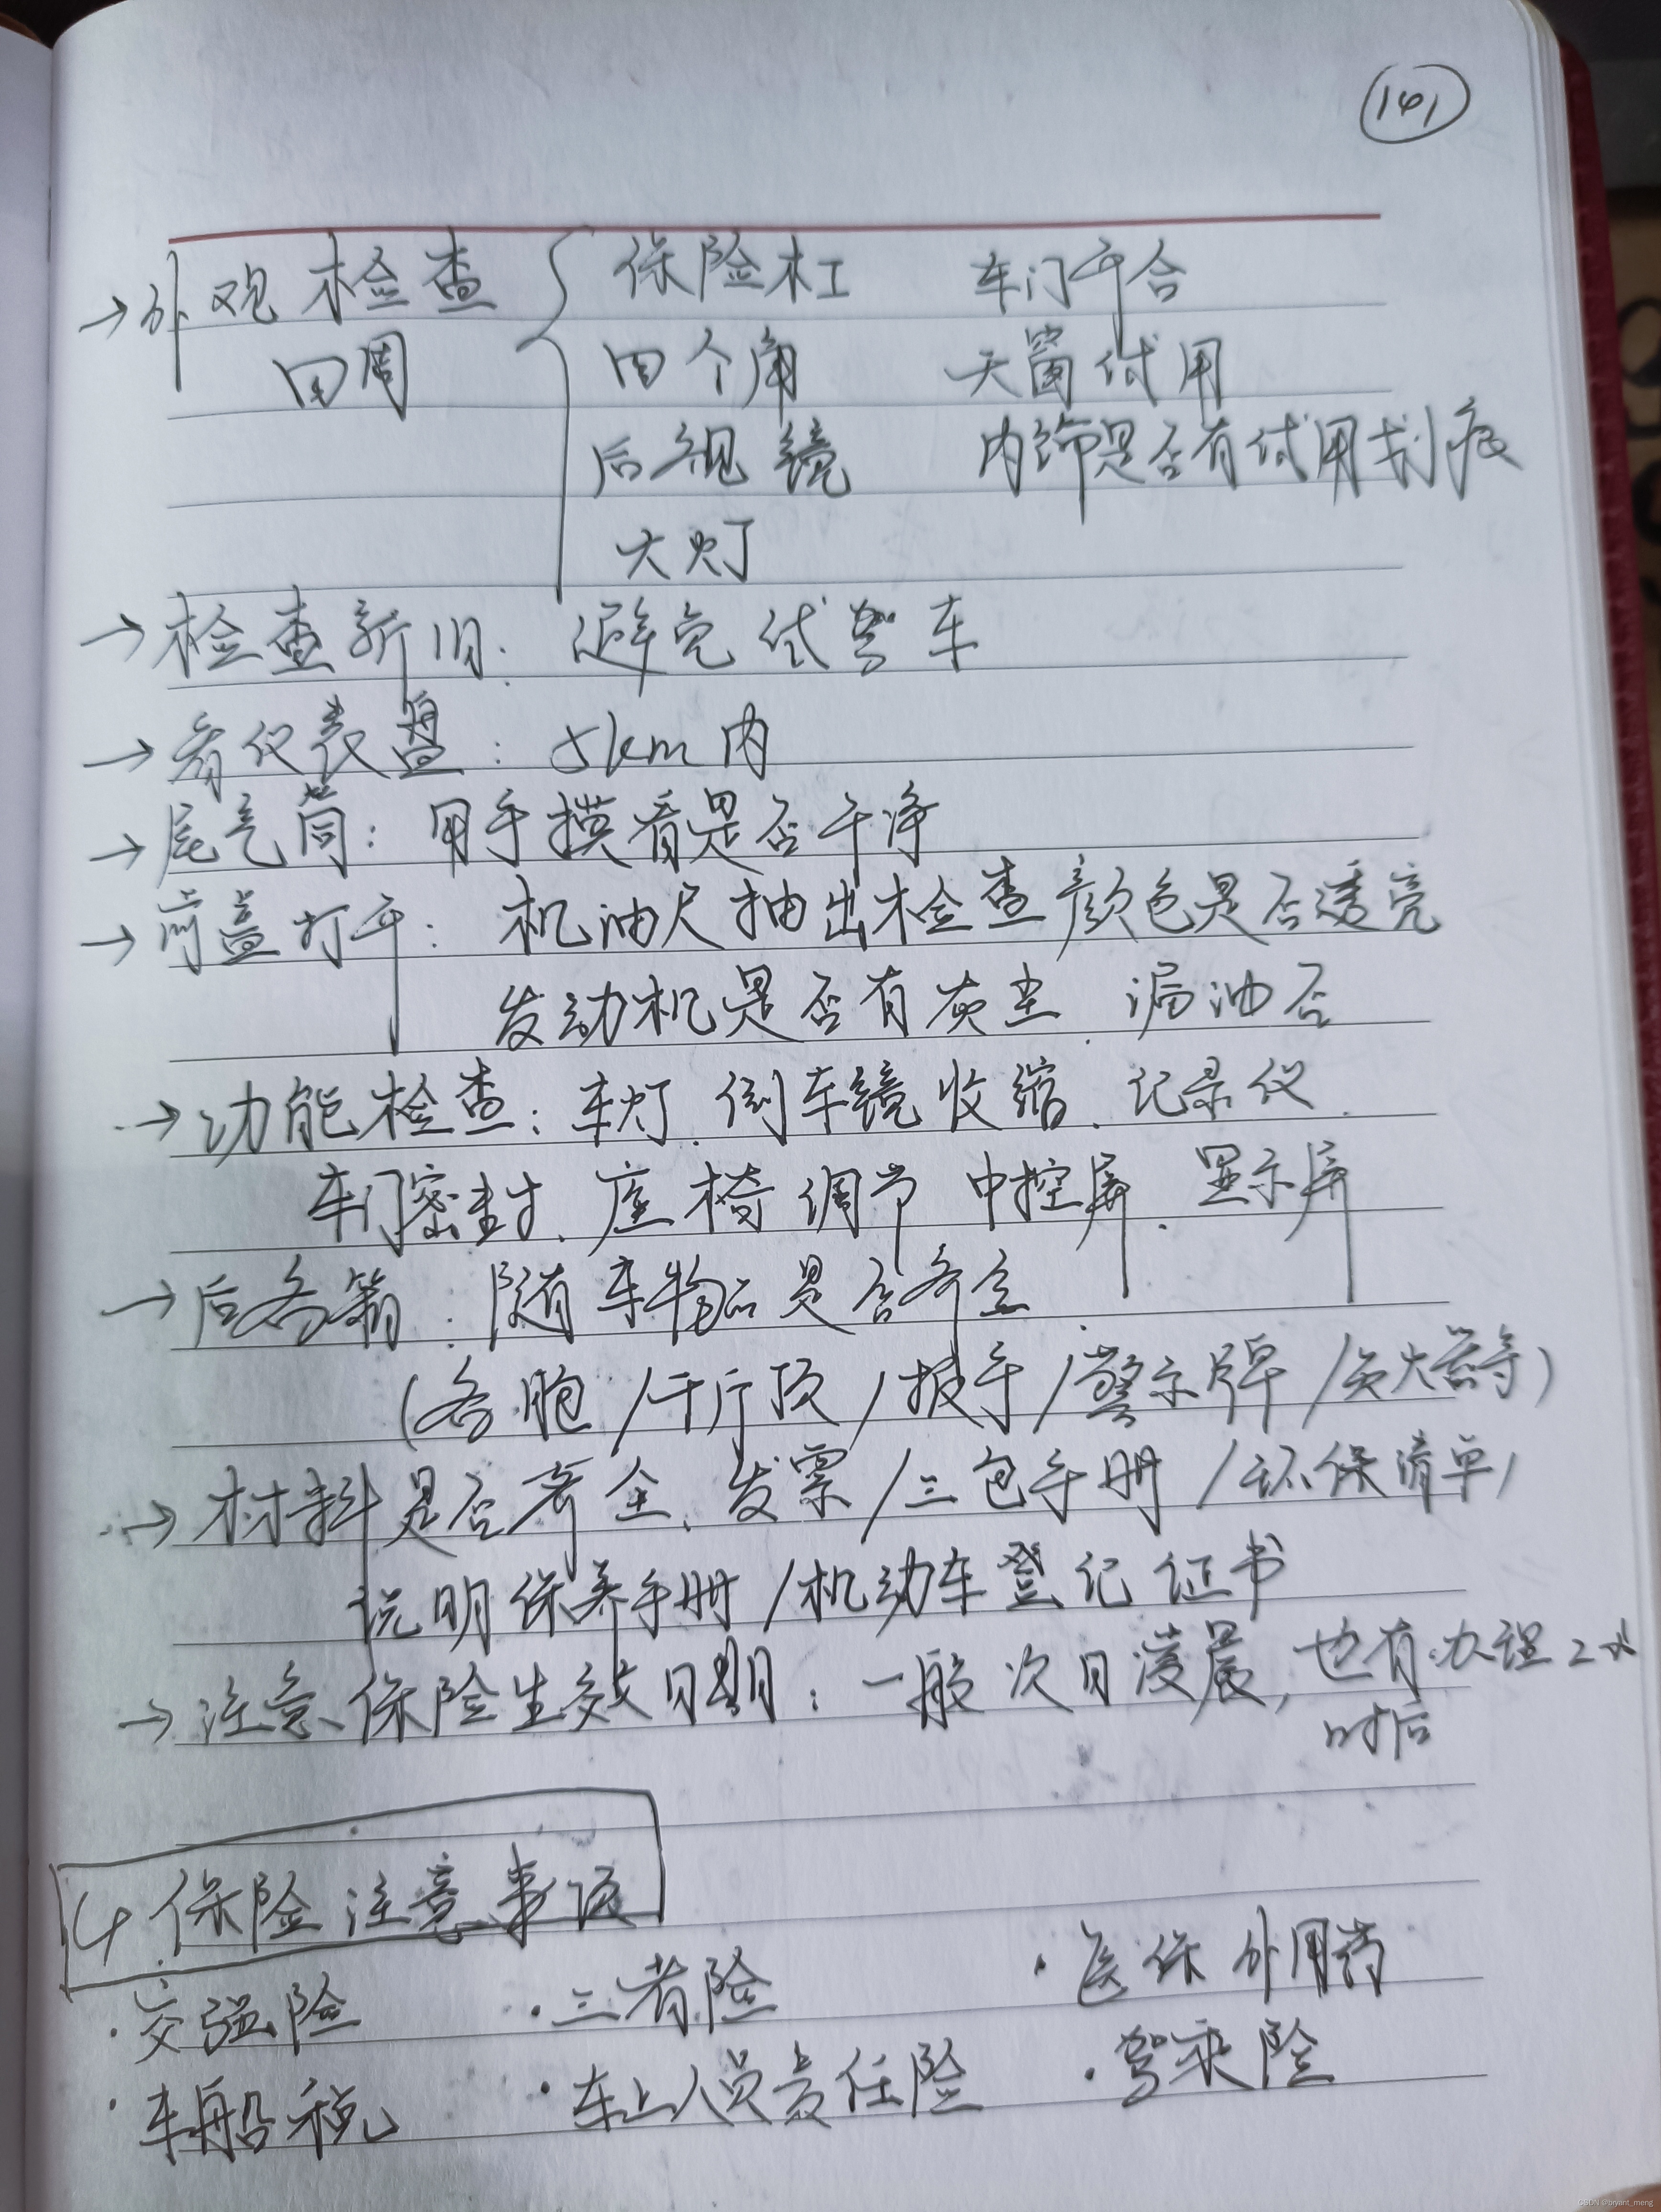 141
→外观检查 保险杠 车门开合
四周 四个角 天窗试用
后视镜 内饰是否有试用划痕
大灯
→检查新旧: 避免试驾车
→看仪表盘: 5km内
→尾气筒: 用手摸看是否干净
→前盖打开: 机油尺抽出检查颜色是否透亮
发动机是否有灰尘、漏油否
→功能检查: 车灯、倒车镜收缩、记录仪、
车门密封、座椅调节 中控屏、显示屏
→后备箱: 随车物品是否齐全
(备胎/千斤顶/扳手/警示牌/灭火器等)
→材料是否齐全、发票/三包手册/环保清单/
说明保养手册/机动车登记证书
→注意保险生效日期: 一般次日凌晨, 也有办理2小
时后
4 保险注意事项
·交强险 ·三者险 ·医保外用药
·车船税 ·车上人员责任险 ·驾乘险
CSDN @bryant_meng